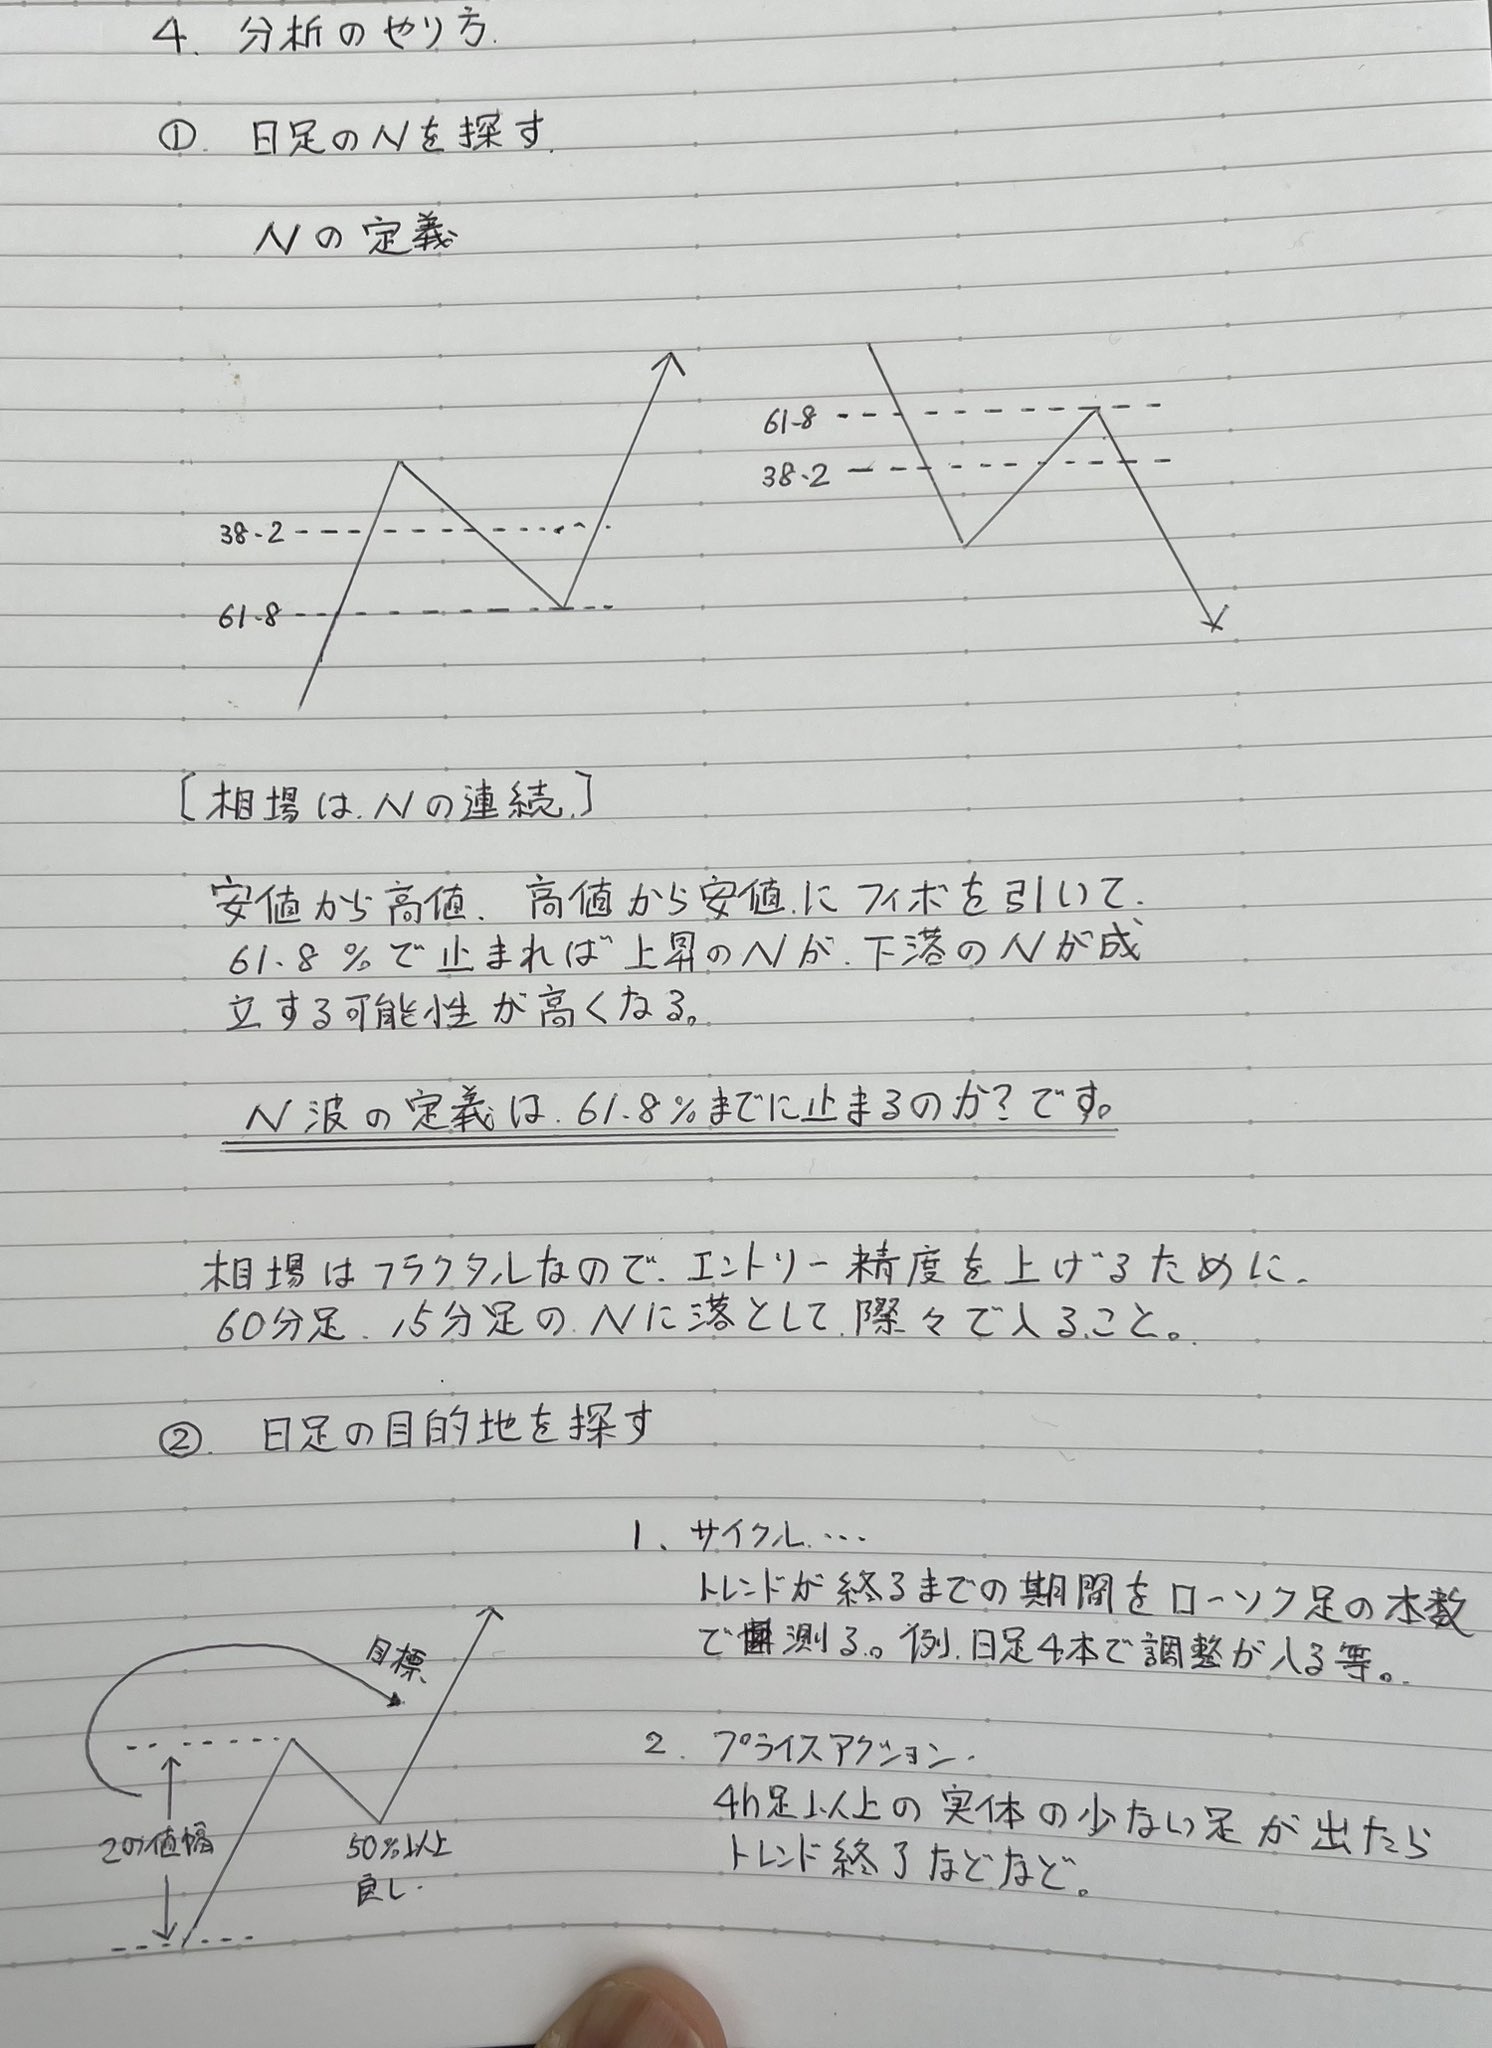 4. 分析のやり方.
①. 日足のNを探す.
Nの定義
38.2
61.8
61.8
38.2
[相場は.Nの連続.]
安値から高値、高値から安値.にフィボを引いて、
61.8%で止まれば上昇のNが、下落のNが成
立する可能性が高くなる。
N波の定義は、61.8%までに止まるのか?です。
相場はフラクタルなので、エントリー精度を上げるために、
60分足、15分足の.Nに落として、際々で入ること。
②. 日足の目的地を探す
目標
この値幅
50%以上
良し.
1、サイクル…
トレンドが終るまでの期間をローソク足の本数
で測る。例、日足4本で調整が入る等。
2. プライスアクション.
4h足以上の実体の少ない足が出たら
トレンド終了などなど。